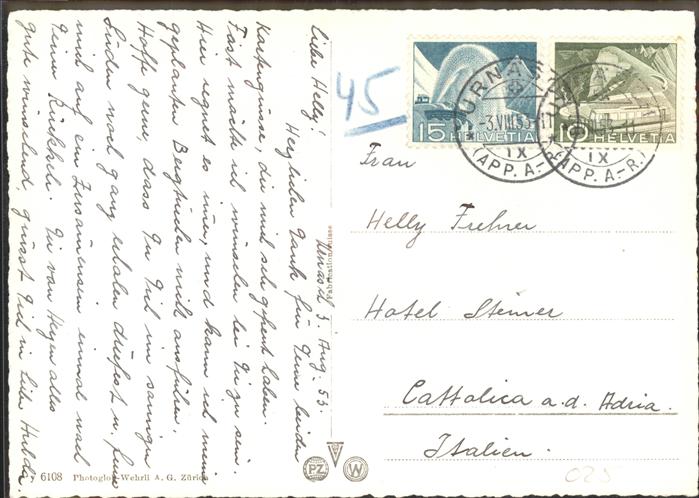 Urnäsch 3. Aug. 53.
Liebe Helly!
Herzlichen Dank für Deine beiden
Kartengrüsse, die mich sehr gefreut haben.
Fast möchte ich wünschen bei Dir zu sein.
Hier regnet es nur, und kann ich meine
geplanten Bergtouren nicht ausführen.
Hoffe gerne, dass Du Dich im sonnigen
Süden noch ganz erholen darfst u. freue
mich auf ein Zusammensein einmal nach
Deiner Rückkehr. Dir von Herzen alles
gute wünschend, grüsst Dich in Liebe
Fabrication Suisse
6108 Photoglob-Wehrli A. G. Zürich
PZ
W
45
15 HELVETIA
10 HELVETIA
URNÄSCH
-3.VIII.53-11
IX
(APP. A.-R.)
Frau
Helly Frehner
Hotel Steiner
Cattolica a.d. Adria.
Italien.
025